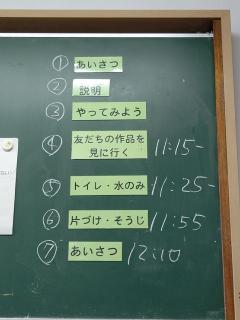 ① あいさつ
② 説明
③ やってみよう
④ 友だちの作品を
見に行く 11:15-
⑤ トイレ・水のみ 11:25-
⑥ 片づけ・そうじ 11:55
⑦ あいさつ 12:10